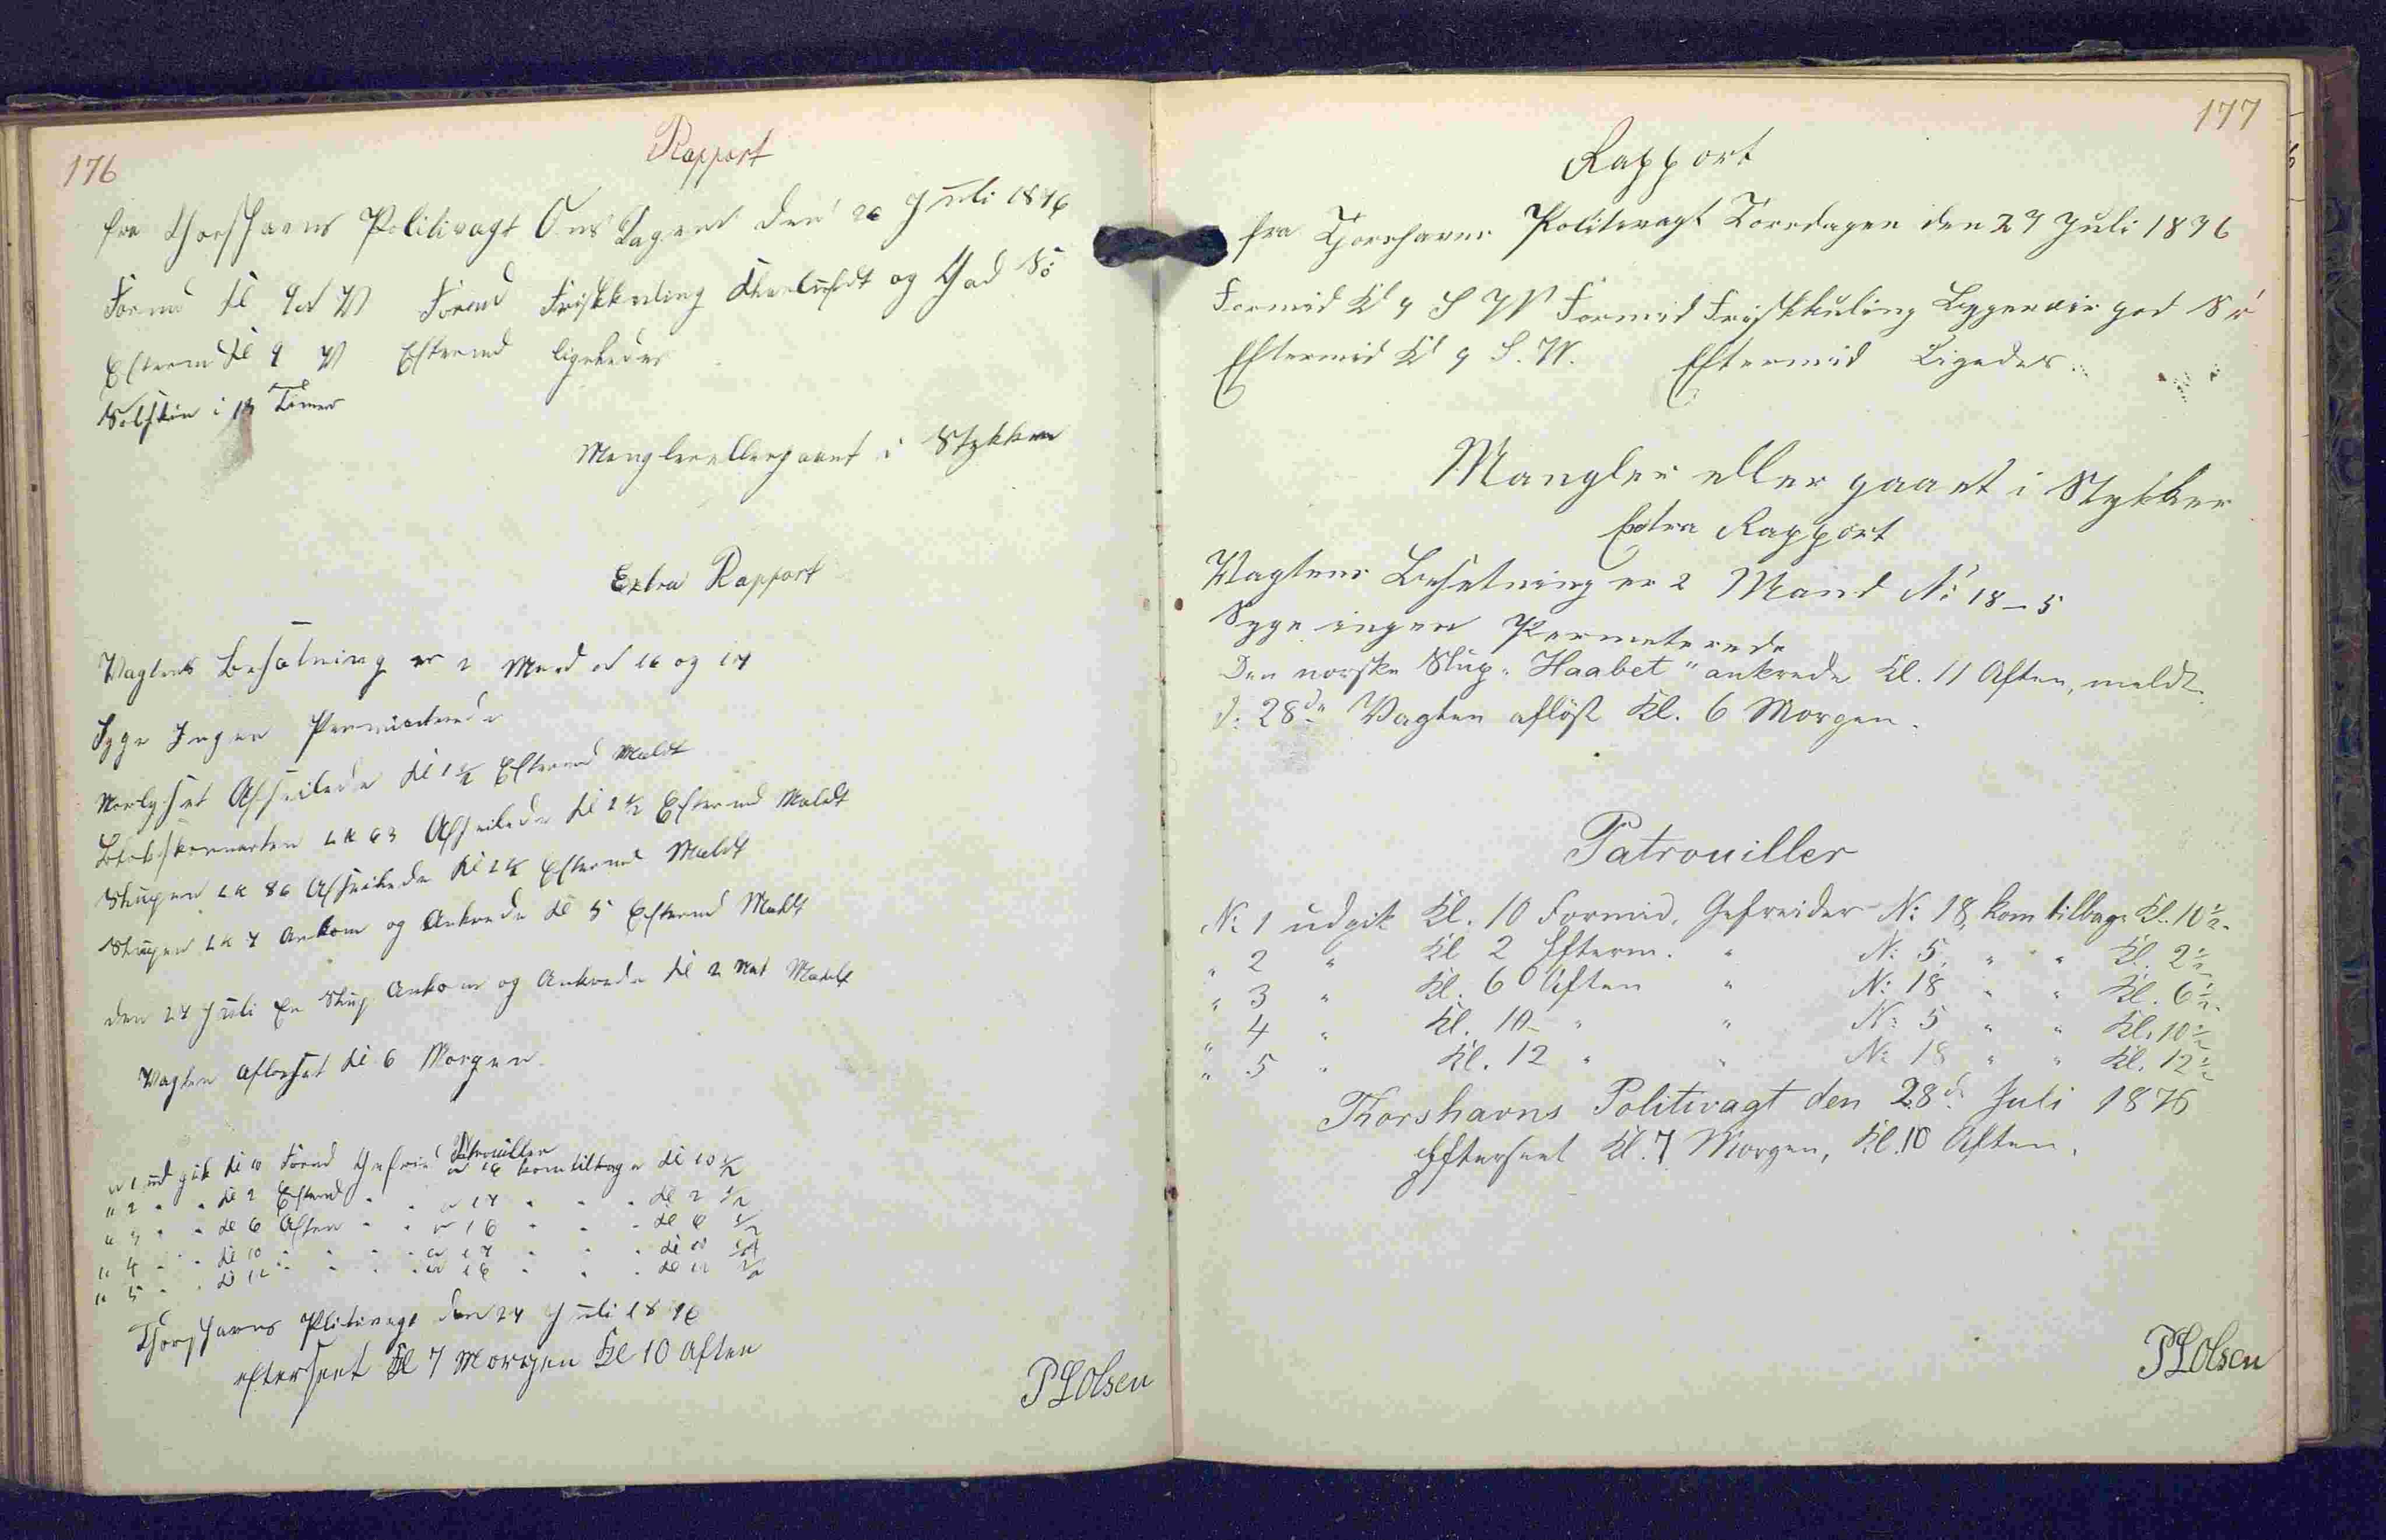 176
Rapport
fra Thorshavns Politivagt Onsdagen den 26 Juli 1876
Formd Kl 9 W Formd Friskkuling og God Sö
Efterm Kl 9 W Eftermd ligeledes
Solskin i Timer
Mangler eller gaaet i Stykker
Extra Rapport
Vagtens Besætning er 2 Mand N 16 og 17
Syge Ingen Permiterede
Afseilede Kl 1 1/2 Eftermd Meldt
LK 63 Afseilede Kl 2 1/2 Eftermd Meldt
Slupen LK 86 Afseilede Kl 2 1/2 Eftermd Meldt
Slupen LK 7 Ankom og Ankrede Kl 5 Eftermd Meldt
den 27 Juli En Slup Ankom og Ankrede Kl 2 Nat Meldt
Vagten aflöset Kl 6 Morgen
Patrouiller
N 1 ud gik Kl 10 Formd Gefreid N 16 kom tilbage Kl 10 1/2
" 2 " " Kl 2 Eftermd " " N 17 " " " Kl 2 1/2
" 3 " " Kl 6 Aften " " N 16 " " " Kl 6 1/2
" 4 " " Kl 10 " " " N 17 " " " Kl 10 1/2
" 5 " " Kl 12 " " " N 16 " " " Kl 12 1/2
Thorshavns Plitivagt den 27 Juli 1876
efterseet Kl 7 Morgen Kl 10 Aften
PLOlsen
177
Rapport
fra Thorshavns Politivagt Torsdagen den 27 Juli 1876
Formid Kl 9 S W Formid Friskkuling Bygeveir god Sö
Eftermid Kl 9 S. W. Eftermid Ligedes
Mangler eller gaaet i Stykker
Extra Rapport
Vagtens Besetning er 2 Mand N: 18 - 5
Syge ingen Permeterede
Den norske Slup "Haabet" ankrede Kl. 11 Aften, meldt.
d: 28de Vagten aflöst Kl. 6 Morgen.
Patrouiller
N: 1 udgik Kl. 10 Formid. Gefreider N: 18, kom tilbage Kl. 10 1/2.
" 2 " Kl 2 Efterm. " N: 5, " " Kl. 2 1/2
" 3 " Kl. 6 Aften " N: 18 " " Kl. 6 1/2.
" 4 " Kl. 10 " " N: 5 " " Kl. 10 1/2
" 5 " Kl. 12 " " N: 18 " " Kl. 12 1/2
Thorshavns Politivagt den 28de Juli 1876
Efterseet Kl. 7 Morgen, Kl. 10 Aften.
PLOlsen